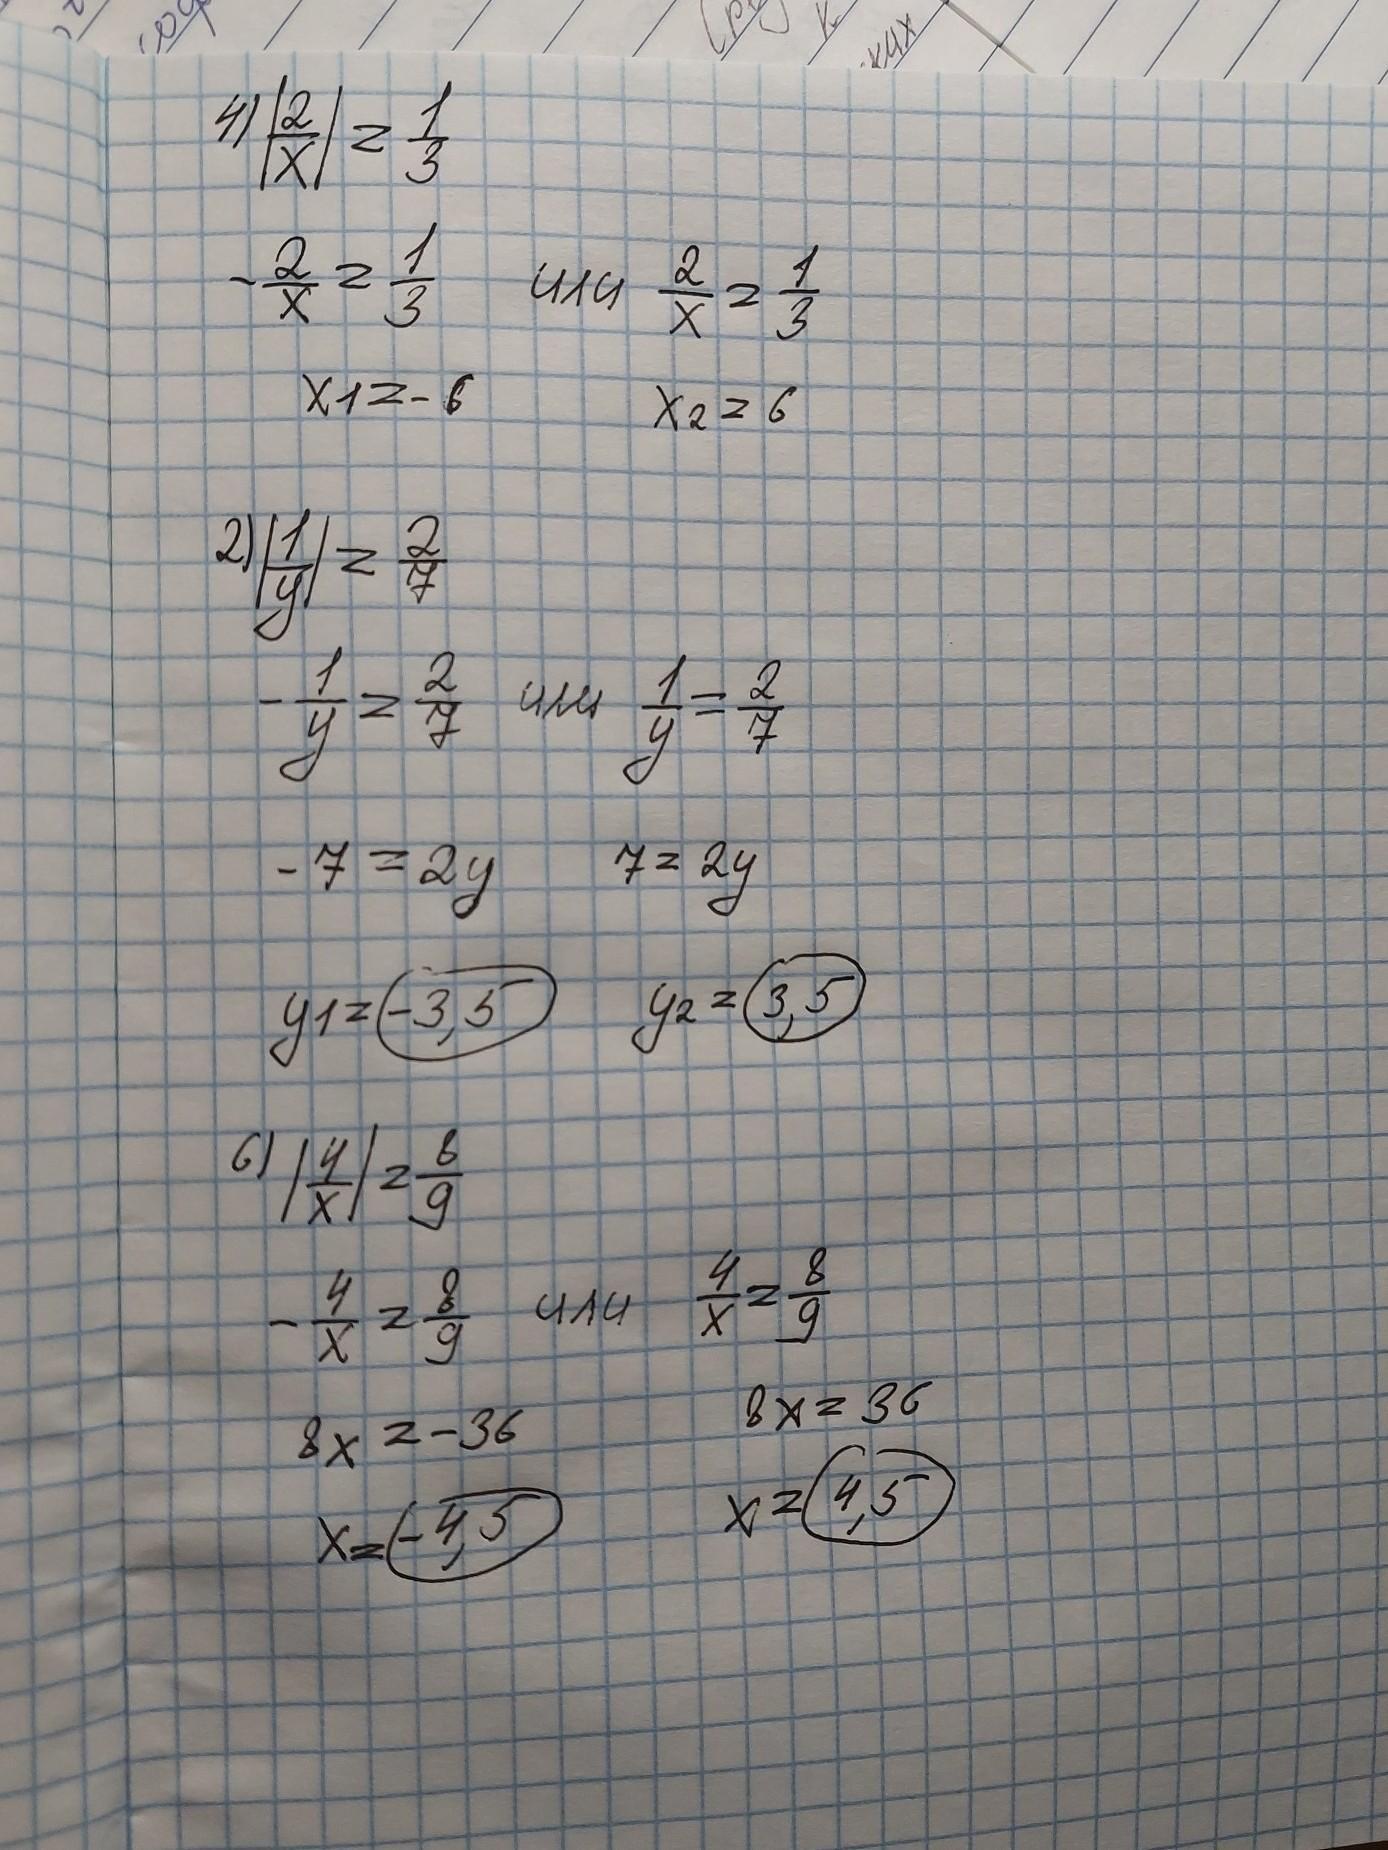 4) |2/x| = 1/3
- 2/x = 1/3 или 2/x = 1/3
x1 = - 6 x2 = 6
2) |1/y| = 2/7
- 1/y = 2/7 или 1/y = 2/7
- 7 = 2y 7 = 2y
y1 = -3,5 y2 = 3,5
6) |4/x| = 8/9
- 4/x = 8/9 или 4/x = 8/9
8x = -36 8x = 36
x = -4,5 x = 4,5